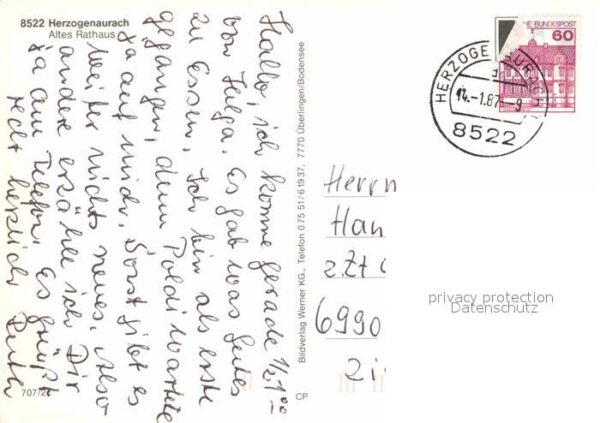 8522 Herzogenaurach
Altes Rathaus
Hallo, ich komme gerade 1/2 1 00
von Helga. Es gab was Gutes
zu Essen. Ich bin als erste
gegangen, denn Poldi wartete
ja auf mich. Sonst gibt es
weiter nichts neues, also
andere erzähle ich Dir
ja am Telefon. Es grüßt
recht herzlich Ruth
707/2
CP
Bildverlag Werner KG., Telefon 0 75 51/6 19 37, 7770 Überlingen/Bodensee
E BUNDESPOST
60
HERZOGENAURACH
14.-1.87-9
8522
Herrn
Han
z.Zt
6990
Zi
privacy protection
Datenschutz